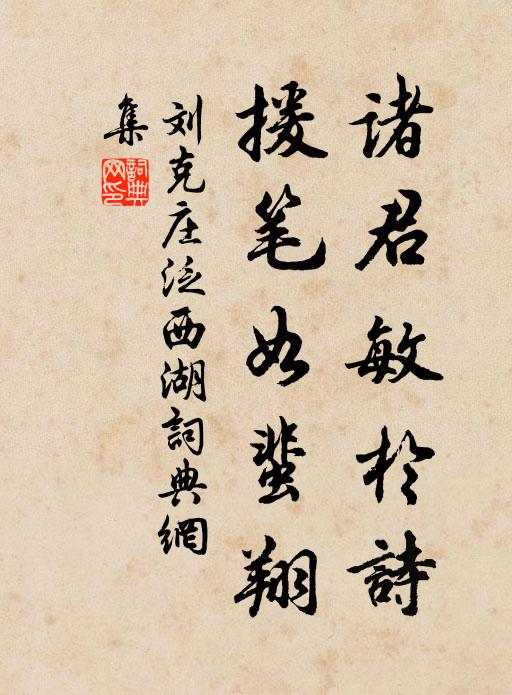 诸君敏於詩
援笔如蜚翔
刘克庄泛西湖詞典網
集
詞典网印